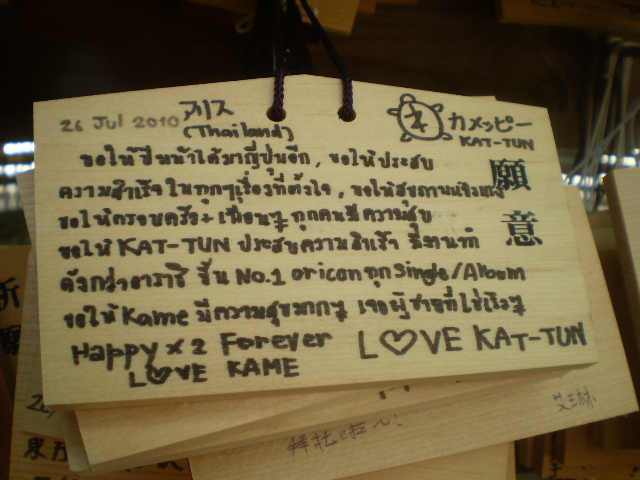 26 Jul 2010 アリス
(Thailand)
カメッピー
KAT-TUN
ขอให้ปีหน้าได้มาญี่ปุ่นอีก, ขอให้ประสบ
ความสำเร็จในทุกๆเรื่องที่ตั้งใจ, ขอให้สุขภาพแข็งแรง
ขอให้ครอบครัว+เพื่อนๆ ทุกคนมีความสุข
ขอให้ KAT-TUN ประสบความสำเร็จ มีงานทำ
ดังกว่าอาราชิ ขึ้น No.1 oricon ทุก Single/Album
ขอให้ Kame มีความสุขมากๆ เจอผู้ชายที่ใช่เร็วๆ
Happy x 2 Forever
L♡VE KAT-TUN
L♡VE KAME
願
意
祈
願
拜托啦~!